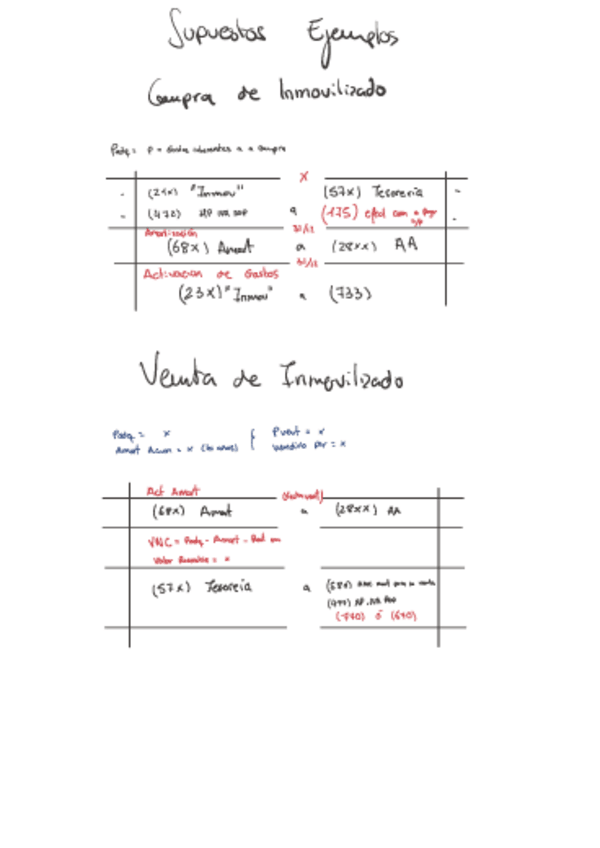 Supuestos Ejemplos
Compra de Inmovilizado
Padq = P + Gastos inherentes a la compra
X
(21x) "Inmov" (57x) Tesorería
(472) HP IVA SOP a (175) efect com a
Amortización 31/12
(68x) Amort a (28xx) AA
31/12
Activación de Gastos
(23x) "Inmov" a (733)
Venta de Inmovilizado
Padq = x Pvent = x
Amort Acum = x vendido por = x
Act Amort
(68x) Amort a (28xx) AA
VNC = Padq - Amort -
Valor = x
(57x) Tesorería a
(477) HP IVA
(770) ó (670)